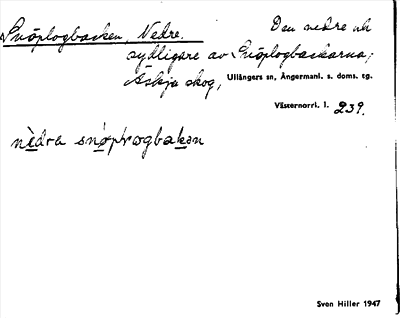 Snöplogbacken, Nedre. Den nedre och
sydligare av Snöplogbackarna;
Askja skog, Ullångers sn, Ångermanl. s. doms. tg.
Västernorrl. l. 239.
nèdra snòplωgbakan
Sven Hiller 1947